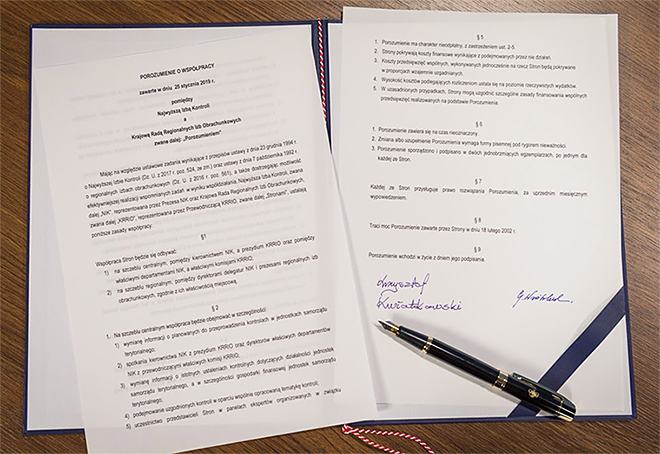 POROZUMIENIE O WSPÓŁPRACY
zawarte w dniu 25 stycznia 2019 r.
pomiędzy
Najwyższą Izbą Kontroli
a
Krajową Radą Regionalnych Izb Obrachunkowych
zwane dalej „Porozumieniem”
Mając na względzie ustawowe zadania wynikające z przepisów ustawy z dnia 23 grudnia 1994 r.
o Najwyższej Izbie Kontroli (Dz. U. z 2017 r. poz. 524, ze zm.) oraz ustawy z dnia 7 października 1992 r.
o regionalnych izbach obrachunkowych (Dz. U. z 2016 r. poz. 561), a także dostrzegając możliwość
efektywniejszej realizacji wspomnianych zadań w wyniku współdziałania, Najwyższa Izba Kontroli, zwana
dalej „NIK”, reprezentowana przez Prezesa NIK oraz Krajowa Rada Regionalnych Izb Obrachunkowych,
zwana dalej „KRRIO”, reprezentowana przez Przewodniczącą KRRIO, zwane dalej „Stronami”, ustalają
poniższe zasady współpracy.
§1
Współpraca Stron będzie się odbywać:
1) na szczeblu centralnym, pomiędzy kierownictwem NIK, a prezydium KRRIO oraz pomiędzy
właściwymi departamentami NIK, a właściwymi komisjami KRRIO;
2) na szczeblu regionalnym, pomiędzy dyrektorami delegatur NIK i prezesami regionalnych izb
obrachunkowych, zgodnie z ich właściwością miejscową.
§ 2
1. Na szczeblu centralnym współpraca będzie obejmować w szczególności:
1) wymianę informacji o planowanych do przeprowadzenia kontrolach w jednostkach samorządu
terytorialnego;
2) spotkania kierownictwa NIK z prezydium KRRIO oraz dyrektorów właściwych departamentów
NIK z przewodniczącymi właściwych komisji KRRIO;
3) wymianę informacji o istotnych ustaleniach kontrolnych dotyczących działalności jednostek
samorządu terytorialnego, a w szczególności gospodarki finansowej jednostek samorządu
terytorialnego;
4) podejmowanie uzgodnionych kontroli w oparciu wspólnie opracowaną tematykę kontroli;
5) uczestnictwo przedstawicieli Stron w panelach ekspertów organizowanych w związku
§ 5
1. Porozumienie ma charakter nieodpłatny, z zastrzeżeniem ust. 2-5.
2. Strony pokrywają koszty finansowe wynikające z podejmowanych przez nie działań.
3. Koszty przedsięwzięć wspólnych, wykonywanych jednocześnie na rzecz Stron będą pokrywane
w proporcjach wzajemnie uzgadnianych.
4. Wysokość kosztów podlegających rozliczeniom ustala się na poziomie rzeczywistych wydatków.
5. W uzasadnionych przypadkach, Strony mogą uzgodnić szczególne zasady finansowania wspólnych
przedsięwzięć realizowanych na podstawie Porozumienia.
§ 6
1. Porozumienie zawiera się na czas nieoznaczony.
2. Zmiana albo uzupełnienie Porozumienia wymaga formy pisemnej pod rygorem nieważności.
3. Porozumienie sporządzono i podpisano w dwóch jednobrzmiących egzemplarzach, po jednym dla
każdej ze Stron.
§ 7
Każdej ze Stron przysługuje prawo rozwiązania Porozumienia, za uprzednim miesięcznym
wypowiedzeniem.
§ 8
Traci moc Porozumienie zawarte przez Strony w dniu 18 lutego 2002 r.
§ 9
Porozumienie wchodzi w życie z dniem jego podpisania.
Krzysztof
Kwiatkowski